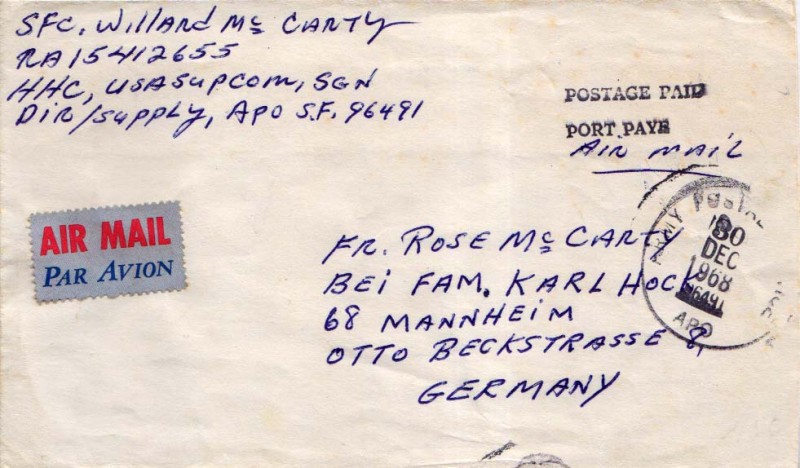 SFC. Willard Mc Carty
RA15412655
HHC, USASUPCOM, SGN
Dir/Supply, APO S.F. 96491
POSTAGE PAID
PORT PAYE
Air Mail
AIR MAIL
PAR AVION
ARMY POSTAL
30
DEC
1968
96491
APO
Fr. Rose McCarty
Bei Fam. Karl Hock
68 Mannheim
Otto Beckstrasse 8
GERMANY